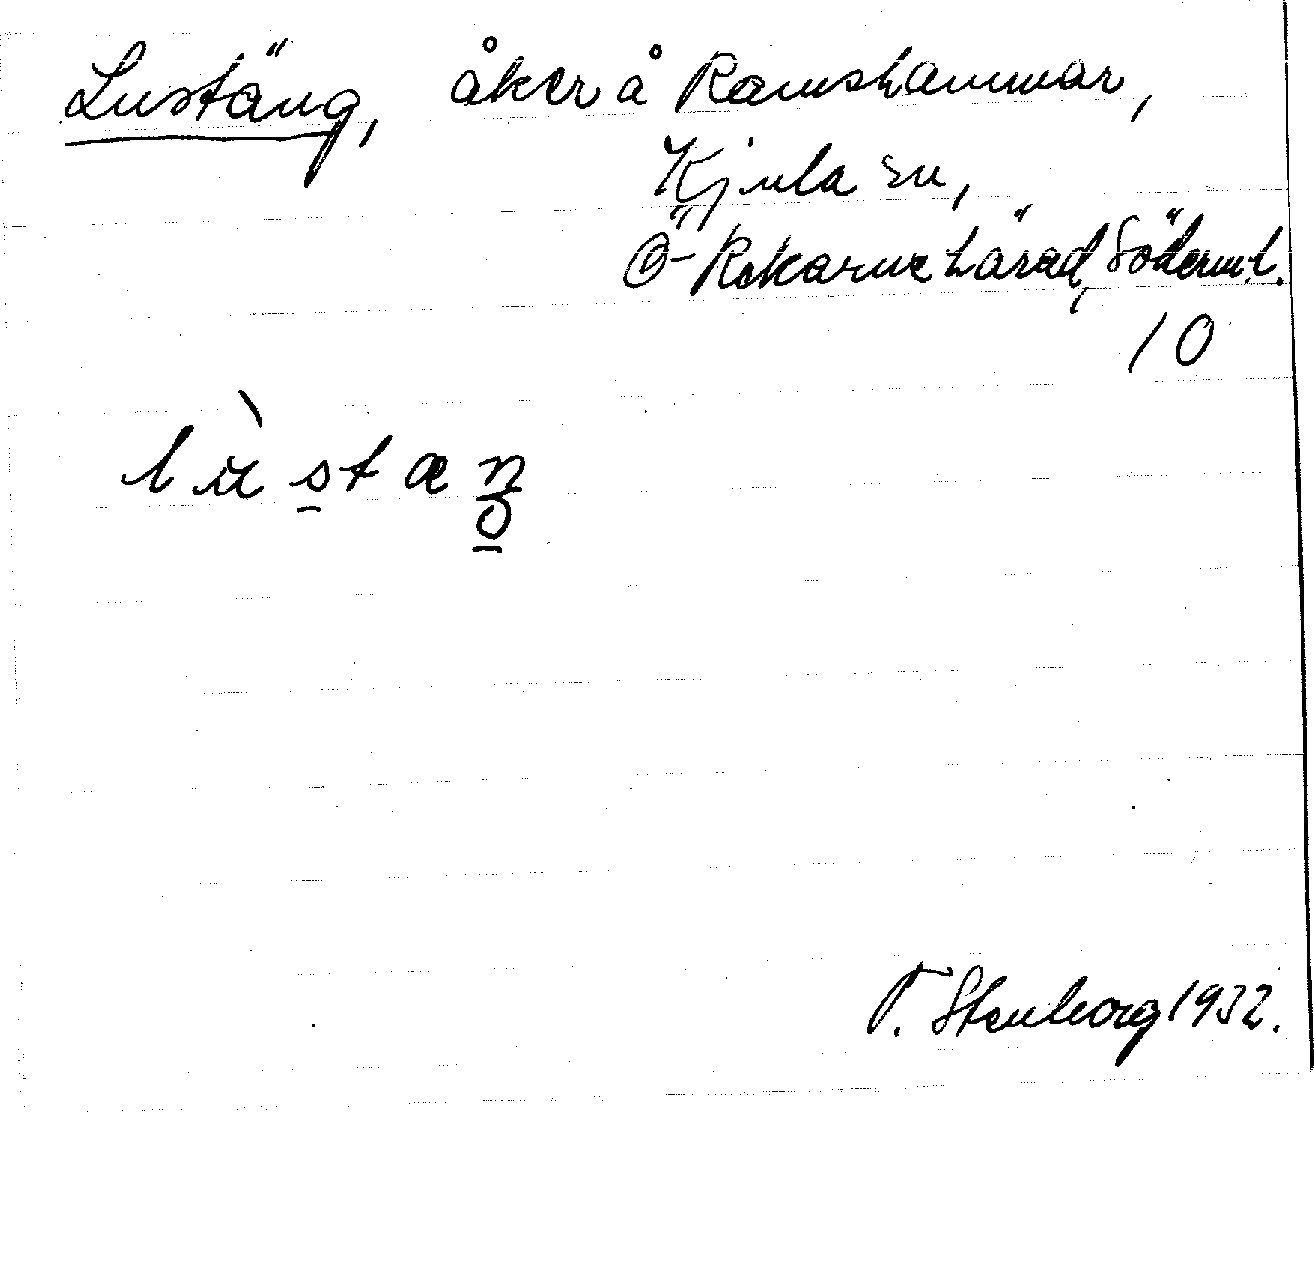 Lustäng, åker å Ramshammar,
Kjula sn,
Ö-Rekarne härad, Söderml.
10
lùstæn
T. Stenborg 1932.